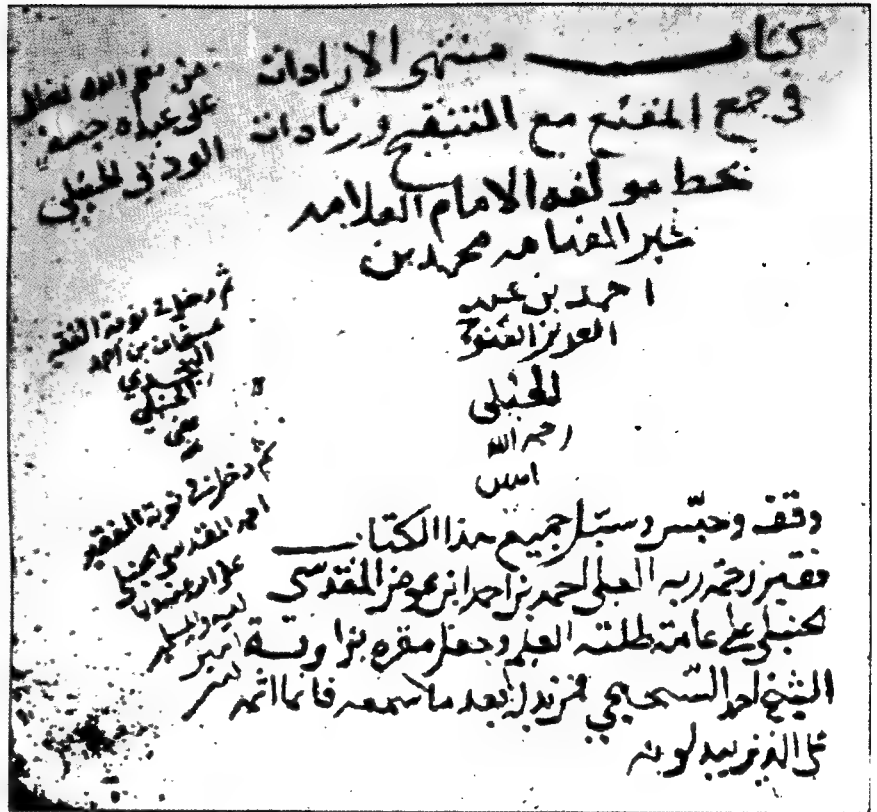 كتاب منتهى الارادات
في جمع المقنع مع التنقيح وزيادات
بخط مولفه الامام العلامه
محمد بن
احمد بن عبد
العزيز الفتوحي
الحنبلي
رحمه الله
امين
من نعم الله تعالى
على عبده
الحنبلي
ثم دخل في نوبة الفقير
عثمان بن احمد
النجدي
الحنبلي
عفي
عنه
ثم دخل في نوبة الفقير
احمد المقدسي الحنبلي
وقف وحبس وسبل جميع هذا الكتاب
فقير رحمة ربه العلي احمد بن احمد ابن عوض المقدسي
الحنبلي على عامة طلبة العلم وجعل مقره
الشيخ احمد فمن بدله بعد ما سمعه فانما اثمه
على الذين يبدلونه